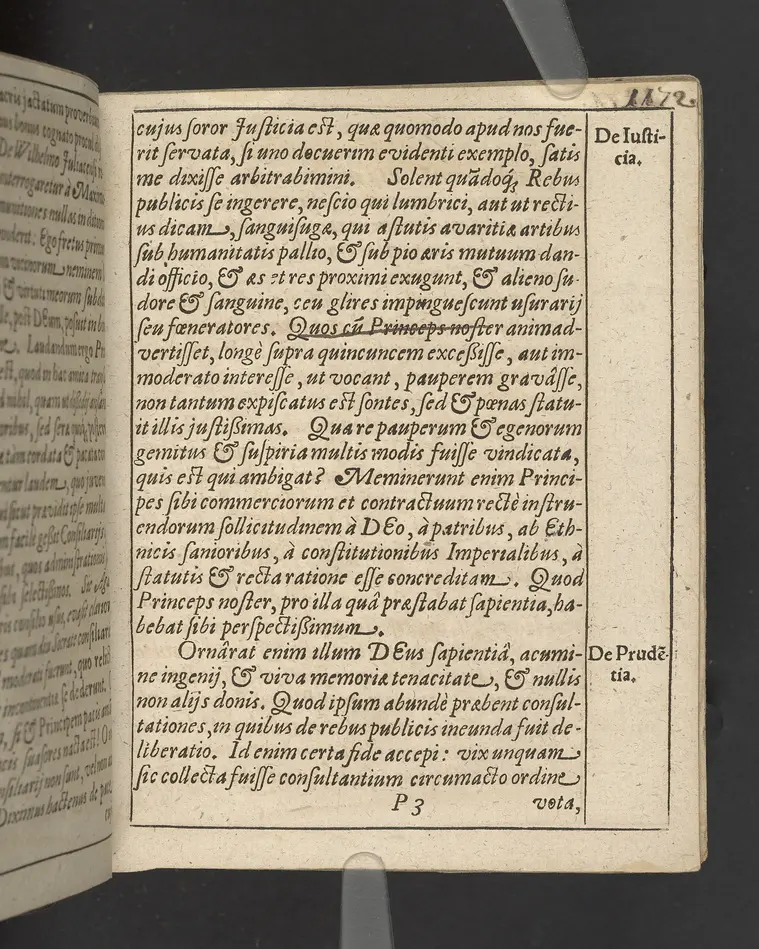 1172.
cujus ſoror Juſticia eſt, quæ quomodo apud nos fue-
rit ſervata, ſi uno docuerim evidenti exemplo, ſatis
me dixiſſe arbitrabimini. Solent quãdoq́; Rebus
publicis ſe ingerere, neſcio qui lumbrici, aut ut recti-
us dicam, ſanguiſugæ, qui aſtutis avaritiæ artibus
ſub humanitatis pallio, & ſub pio æris mutuum dan-
di officio, & æs et res proximi exugunt, & alieno ſu-
dore & ſanguine, ceu glires impingueſcunt uſurarij
ſeu fœneratores. Quos cũ Princeps noſter animad-
vertiſſet, longè ſupra quincuncem exceßiſſe, aut im-
moderato intereſſe, ut vocant, pauperem gravâſſe,
non tantum expiſcatus eſt ſontes, ſed & pœnas ſtatu-
it illis juſtißimas. Quare pauperum & egenorum
gemitus & ſuſpiria multis modis fuiſſe vindicata,
quis eſt qui ambigat? Meminerunt enim Princi-
pes ſibi commerciorum et contractuum rectè inſtru-
endorum ſollicitudinem à DEo, à patribus, ab Eth-
nicis ſanioribus, à conſtitutionibus Imperialibus, à
ſtatutis & recta ratione eſſe concreditam. Quod
Princeps noſter, pro illa quâ præſtabat ſapientia, ha-
bebat ſibi perſpectißimum.
Ornârat enim illum DEus ſapientiâ, acumi-
ne ingenij, & viva memoriæ tenacitate, & nullis
non alijs donis. Quod ipſum abundè præbent conſul-
tationes, in quibus de rebus publicis ineunda fuit de-
liberatio. Id enim certa fide accepi: vix unquam
ſic collecta fuiſſe conſultantium circumacto ordine
P 3 vota,
De Iuſti-
cia.
De Prudẽ-
tia.